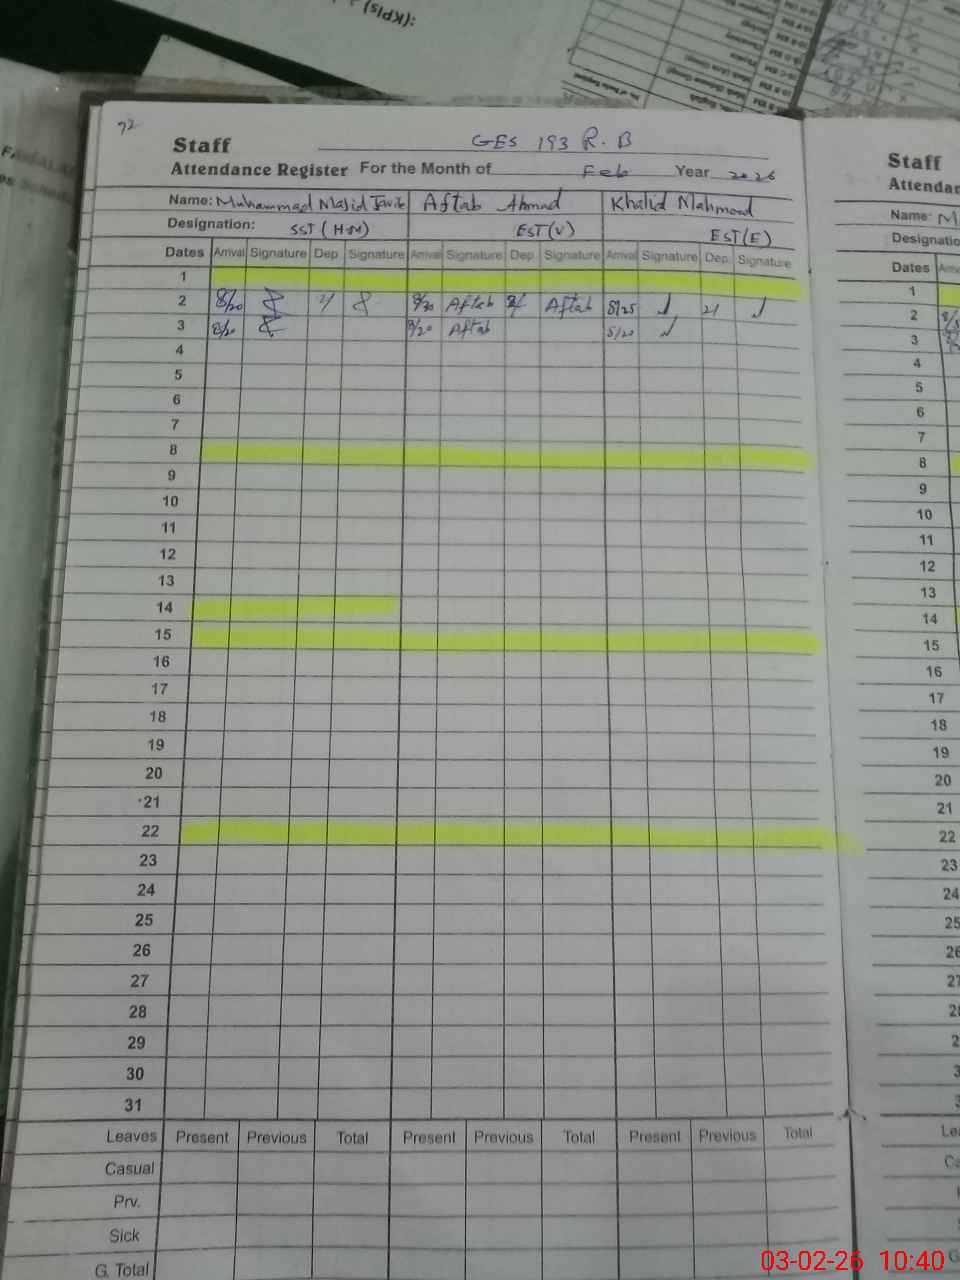 (KPIs)
72
Staff GES 193 R. B
Attendance Register For the Month of Feb Year 2026
Name: Muhammad Majid Aftab Ahmad Khalid Mahmood
Designation: SST (HM) EST(V) EST(E)
Dates Arrival Signature Dep Signature Arrival Signature Dep. Signature Arrival Signature Dep. Signature
1
2 8/20 2/ 8/20 Aftab 2/ Aftab 8/25 2/
3 8/20 8/20 Aftab 8/20
4
5
6
7
8
9
10
11
12
13
14
15
16
17
18
19
20
21
22
23
24
25
26
27
28
29
30
31
Leaves Present Previous Total Present Previous Total Present Previous Total
Casual
Prv.
Sick
G. Total
Staff
Attendan
Name: M
Designatio
Dates
1
2
3
4
5
6
7
8
9
10
11
12
13
14
15
16
17
18
19
20
21
22
23
24
25
26
27
03-02-26 10:40